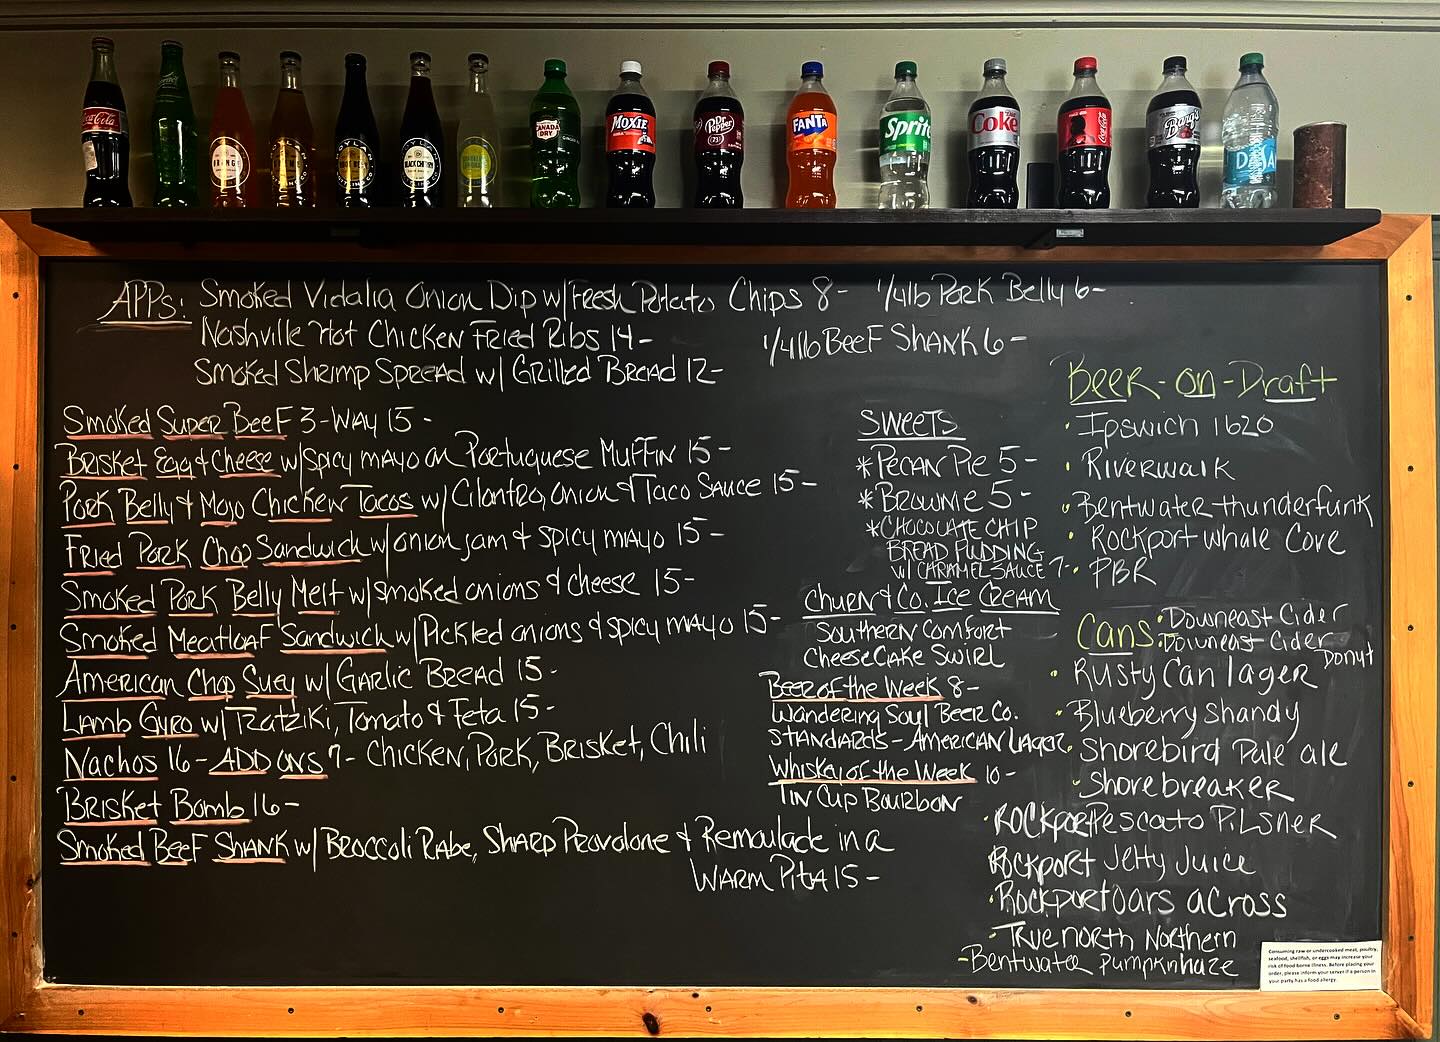 Coca-Cola
CANADA DRY
MOXIE
Dr Pepper
23
FANTA
Sprite
Coke
Coca-Cola
Barq's
BLACK CHERRY
APPs: Smoked Vidalia Onion Dip w/ Fresh Potato Chips 8- 1/4lb Pork Belly 6-
Nashville Hot Chicken Fried Ribs 14- 1/4lb Beef Shank 6-
Smoked Shrimp Spread w/ Grilled Bread 12-
Smoked Super Beef 3-Way 15-
Brisket Egg & Cheese w/ spicy mayo on Portuguese Muffin 15-
Pork Belly & Mojo Chicken Tacos w/ Cilantro, onion & Taco Sauce 15-
Fried Pork Chop Sandwich w/ onion jam & spicy mayo 15-
Smoked Pork Belly Melt w/ smoked onions & cheese 15-
Smoked Meatloaf Sandwich w/ Pickled onions & spicy mayo 15-
American Chop Suey w/ Garlic Bread 15-
Lamb Gyro w/ Tzatziki, Tomato & Feta 15-
Nachos 16- ADD ONS 7- Chicken, Pork, Brisket, Chili
Brisket Bomb 16-
Smoked Beef Shank w/ Broccoli Rabe, Sharp Provolone & Remoulade in a
Warm Pita 15-
Sweets
*Pecan Pie 5-
*Brownie 5-
*Chocolate Chip
Bread Pudding
w/ Caramel Sauce 7-
Churn & Co. Ice Cream
Southern Comfort
Cheesecake Swirl
Beer of the Week 8-
Wandering Soul Beer Co.
Standards - American Lager
Whiskey of the Week 10-
Tin Cup Bourbon
Beer-on-Draft
· Ipswich 1620
· Riverwalk
· Bentwater thunderfunk
· Rockport Whale Cove
· PBR
Cans: · Downeast Cider
· Downeast Cider
Donut
· Rusty Can lager
· Blueberry Shandy
· Shorebird Pale ale
· Shorebreaker
· Rockport Pescato Pilsner
· Rockport Jetty Juice
· Rockport Oars across
· True north Northern
- Bentwater pumpkinhaze
Consuming raw or undercooked meat, poultry,
seafood, shellfish, or eggs may increase your
risk of food borne illness. Before placing your
order, please inform your server if a person in
your party has a food allergy.